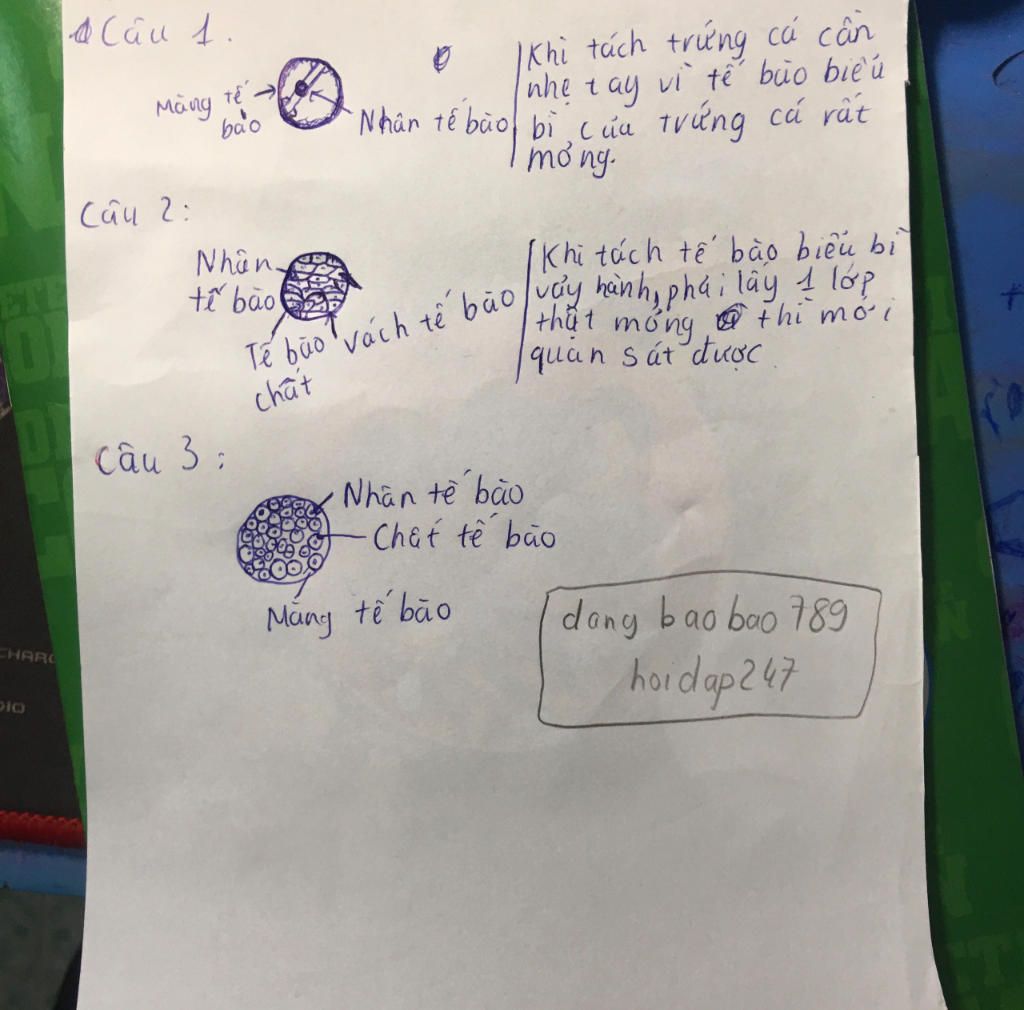 Câu 1.
Màng tế bào
Nhân tế bào
Khi tách trứng cá cần
nhẹ tay vì tế bào biểu
bì của trứng cá rất
mỏng.
Câu 2:
Nhân
tế bào
Tế bào
chất
vách tế bào
Khi tách tế bào biểu bì
vảy hành, phải lấy 1 lớp
thật mỏng thì mới
quan sát được
Câu 3:
Nhân tế bào
Chất tế bào
Màng tế bào
dang baobao789
hoidap247